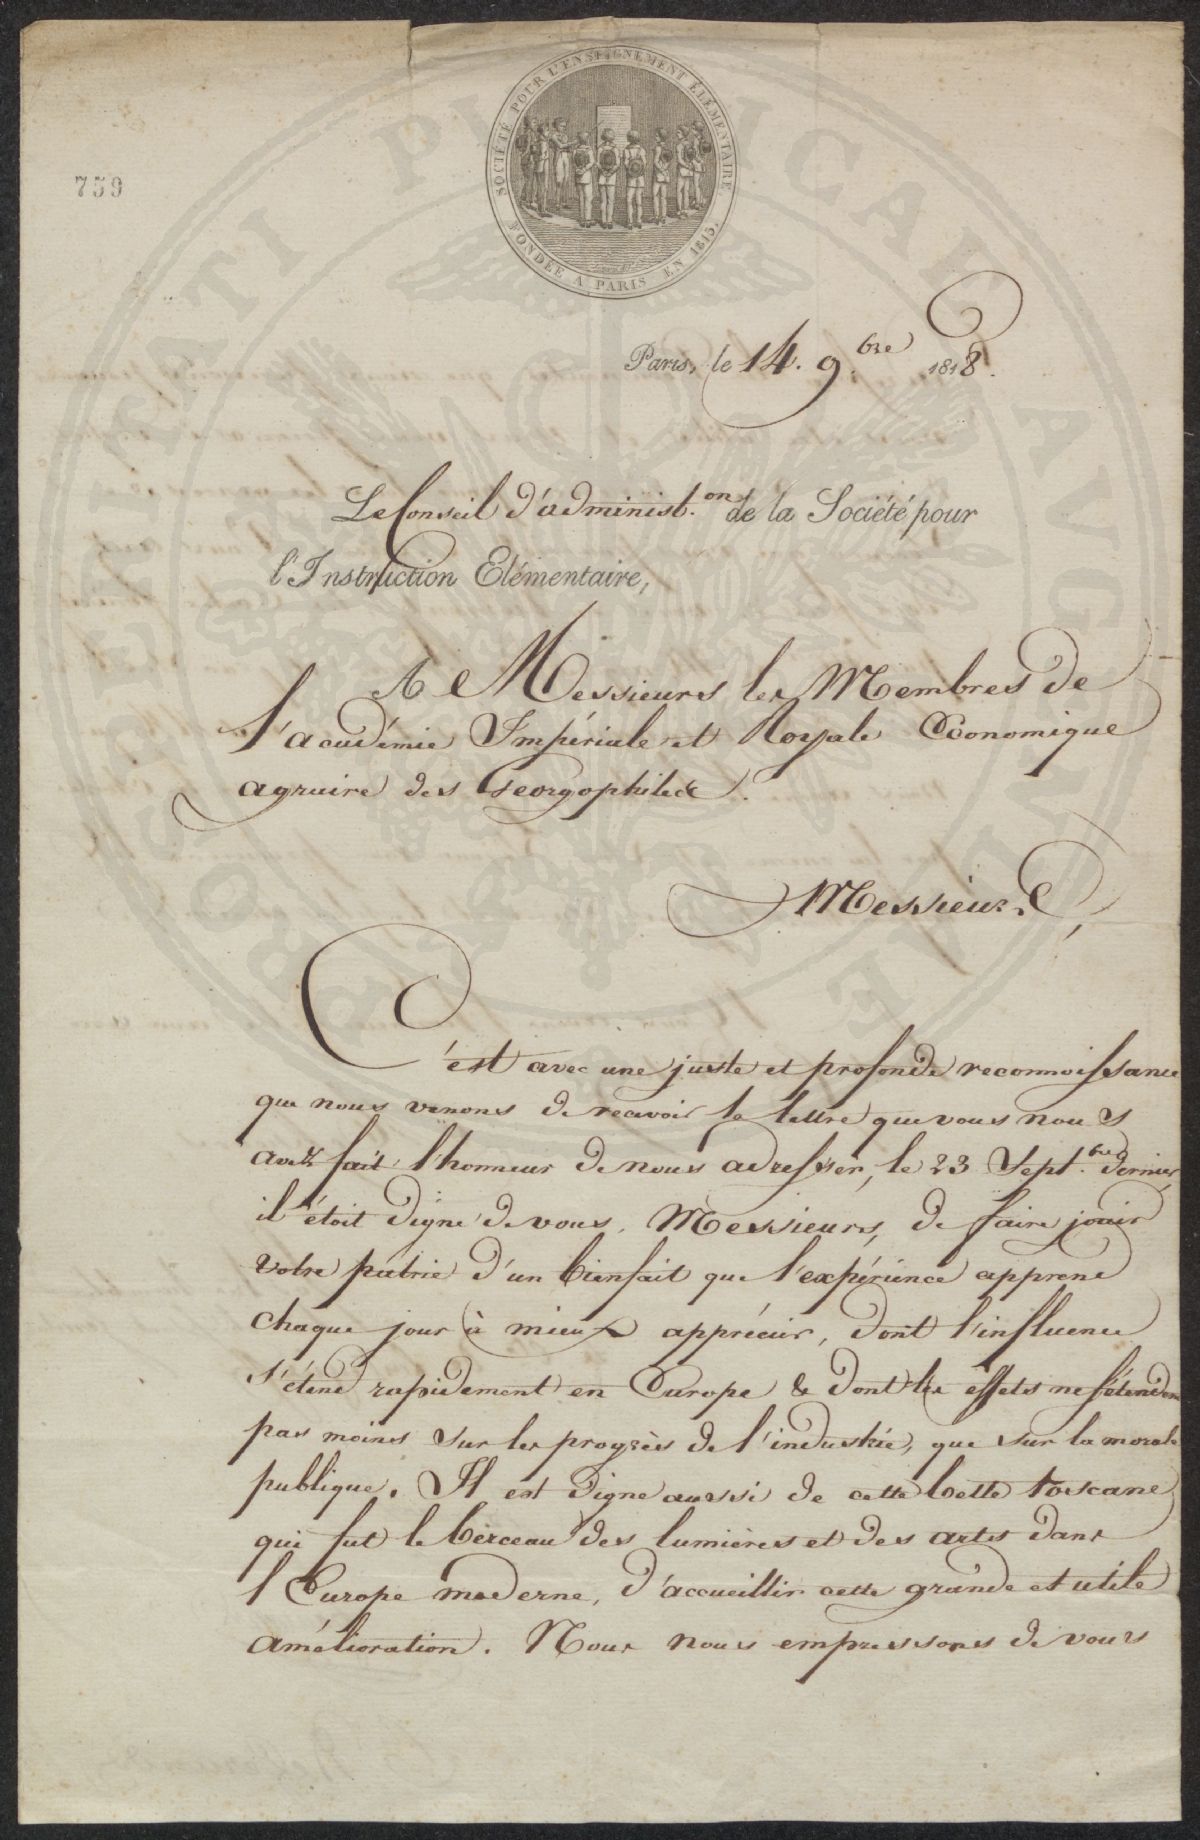 SOCIÉTÉ POUR L'ENSEIGNEMENT ÉLÉMENTAIRE
FONDÉE A PARIS EN 1815.
759
PROSPERITATI PUBLICAE AUGENDAE
Paris, le 14. 9.bre 1818.
Le Conseil d'administ.on de la Société pour
l'Instruction Elémentaire,
A Messieurs les Membres de
l'académie Impériale et Royale Economique
agraire des Georgophiles.
Messieurs,
C'est avec une juste et profonde reconnoissance
que nous venons de recevoir la lettre que vous nous
avez fait l'honneur de nous adresser, le 23 Sept.bre dernier
il étoit digne de vous, Messieurs, de faire jouir
votre patrie d'un bienfait que l'expérience apprend
chaque jour à mieux apprécier, dont l'influence
s'étend rapidement en Europe & dont les effets ne s'étendent
pas moins sur les progrès de l'industrie, que sur la morale
publique. Il est digne aussi de cette belle toscane
qui fut le berceau des lumières et des arts dans
l'Europe moderne, d'accueillir cette grande et utile
amélioration. Nous nous empressons de vous